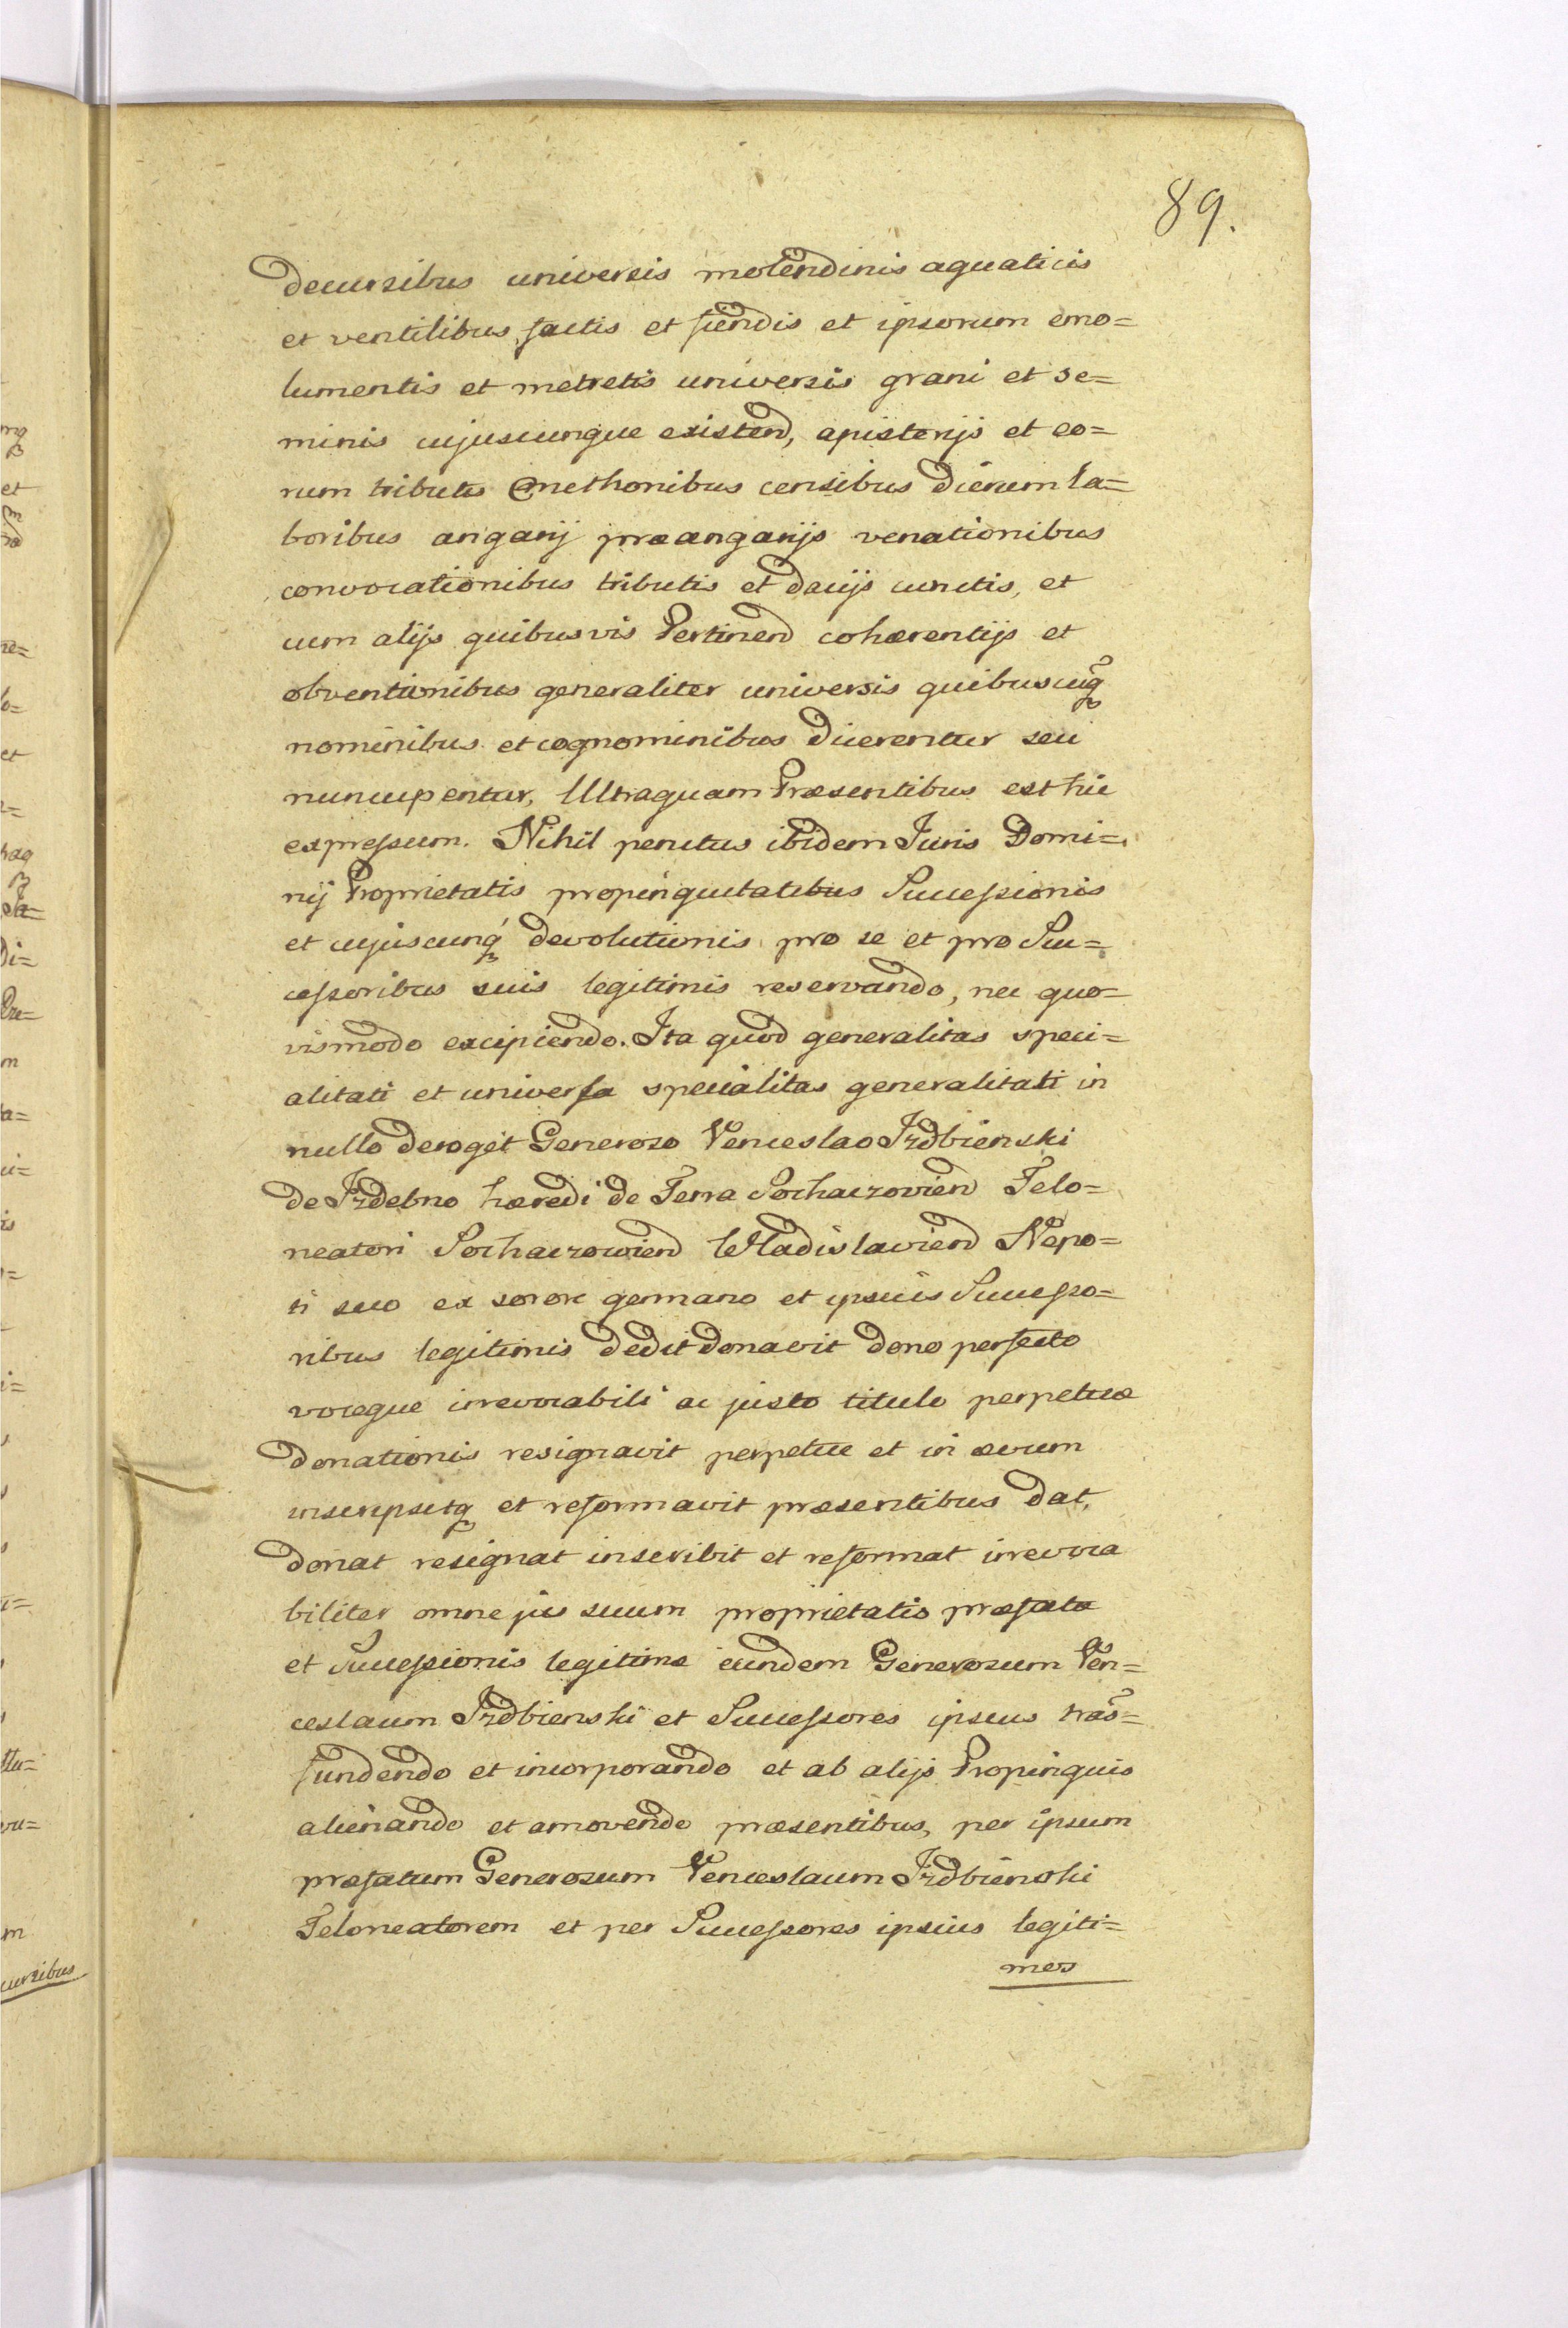 89.
decursibus universis molendinis aquaticis
et ventilibus factis et fiendis et ipsorum emo=
lumentis et metretis universis grani et se=
minis cujuscunque existend, apisterijs et eo=
rum tributis Cmethonibus censibus dierum la=
boribus angarij præangarijs venationibus
convocationibus tributis et dacijs cunctis, et
cum alijs quibusvis Pertinend cohærentijs et
obventionibus generaliter universis quibuscuq̃
nominibus et cognominibus dicerentur seu
nuncupentur, Ultraquam Præsentibus est hic
expressum. Nihil penitus ibidem Juris Domi=
nij Proprietatis propinquitatibus Successionis
et cujuscunq́ devolutionis pro se et pro Suc=
cessoribus suis legitimis reservando, nec quo=
vismodo excipiendo. Ita quod generalitas speci=
alitati et universa specialitas generalitati in
nullo deroget Generoso Venceslao Jzdbienski
de Jzdebno hæredi de Terra Sochaczovien Telo=
neatori Sochaczowien Wladislavien Nepo=
ti suo ex sorore germano et ipsius Successo=
ribus legitimis dedit donavit dono perfecto
voceque irrevocabili ac justo titulo perpetuæ
donationis resignavit perpetue et in ævum
inscripsitq et reformavit præsentibus dat,
donat resignat inscribit et reformat irrevoca
biliter omne jus suum proprietatis præfatæ
et Successionis legitimæ eundem Generosum Ven=
ceslaum Jzdbienski et Successores ipsius trās=
fundendo et incorporando et ab alijs Propinquis
alienando et amovendo præsentibus, per ipsum
præfatum Generosum Venceslaum Jzdbienski
Teloneatorem et per Successores ipsius legiti=
mos